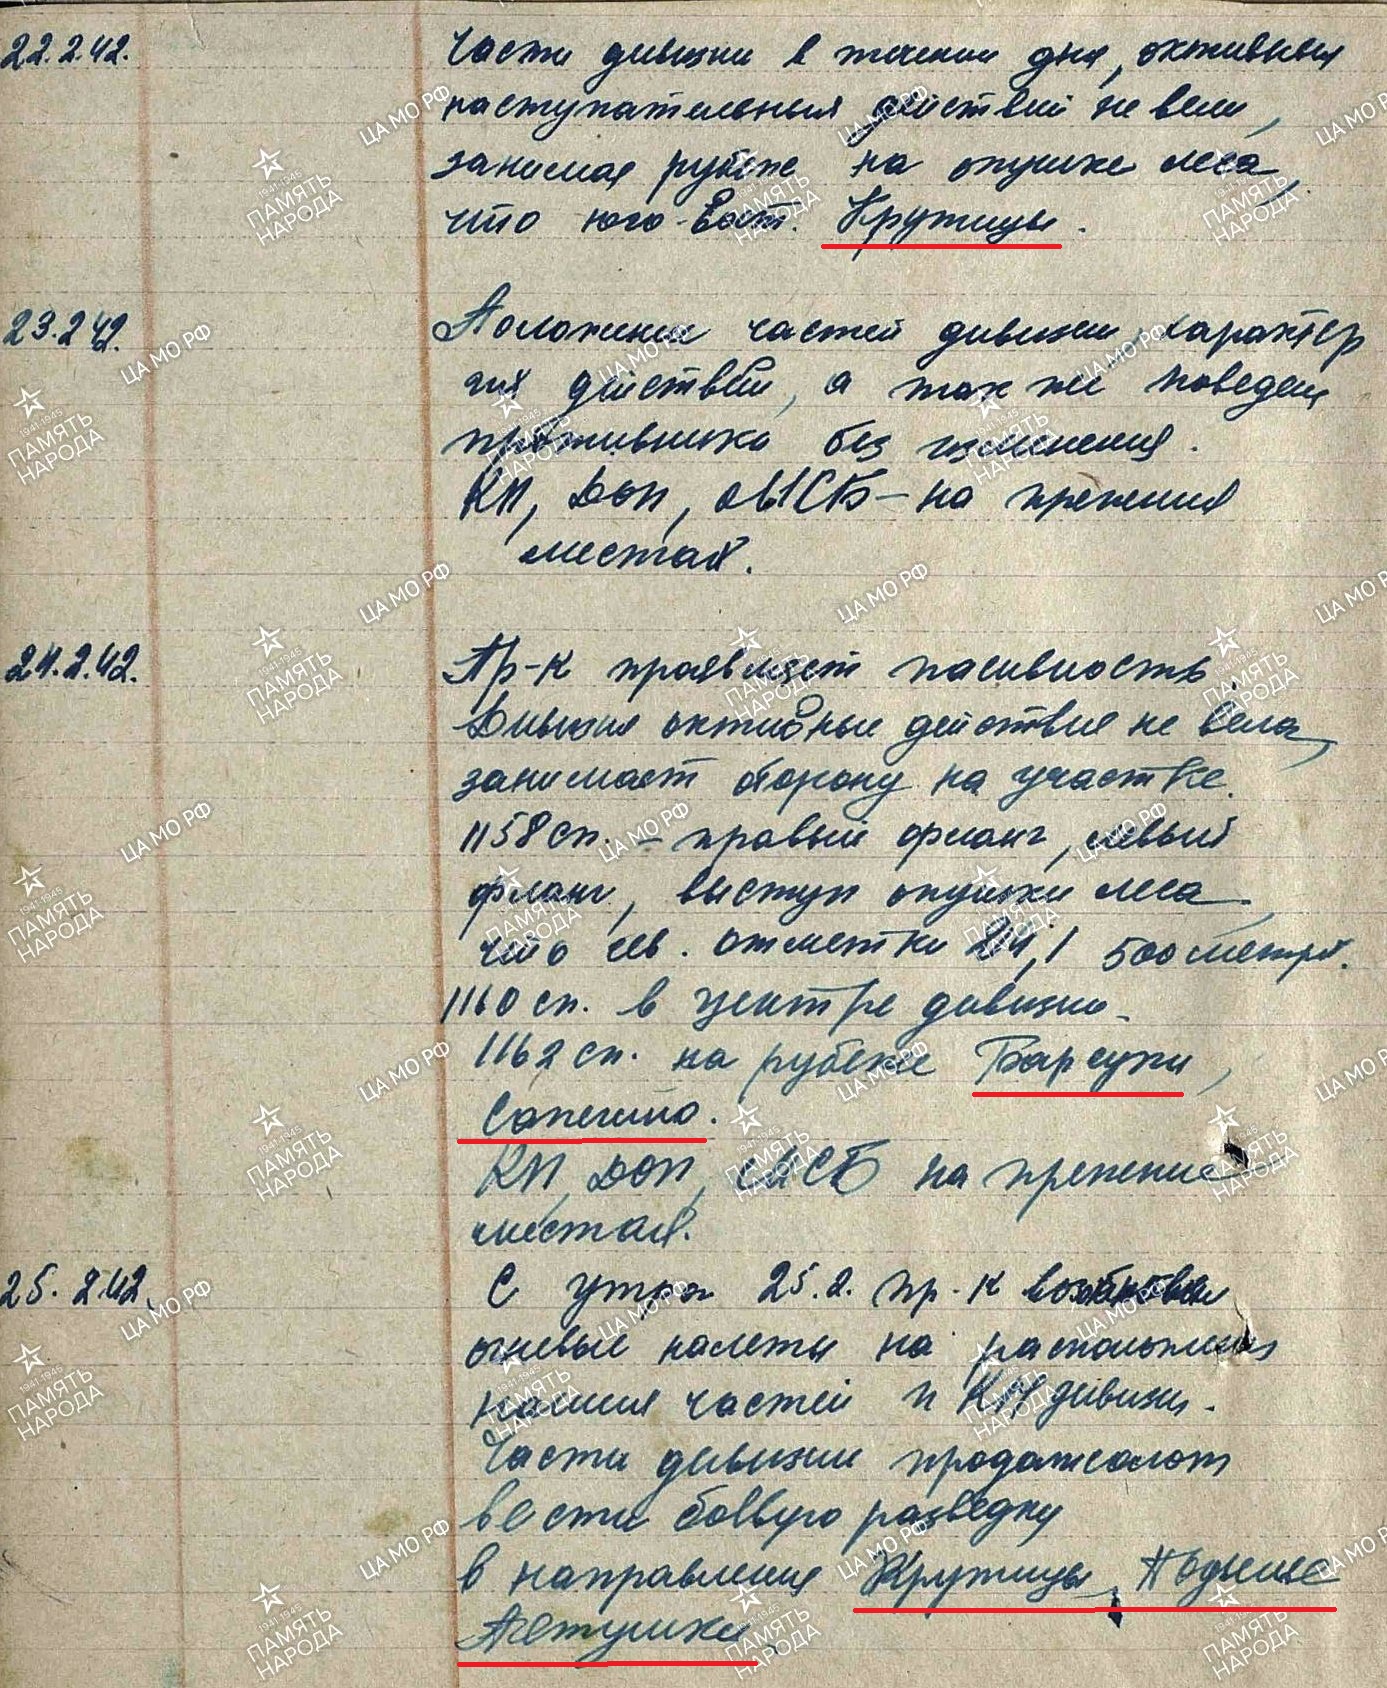 22.2.42. Части дивизии в течении дня, активных
наступательных действий не вели,
занимая рубеж на опушке леса,
что юго-вост. Крутицы.
23.2.42. Положение частей дивизии, характер
их действий, а так же поведен
противника без изменения.
КП, ДОП, ОМСБ – на прежних
местах.
24.2.42. Пр-к проявляет пасивность.
Дивизия активные действия не вела,
занимает оборону на участке.
1158 сп. – правый фланг, левый
фланг, выступ опушки леса,
что сев. отметки 24,1 500 метр.
1160 сп. в центре дивизии.
1162 сп. на рубеже Барсуки,
Сапегино.
КП, ДОП, ОМСБ на прежние
местах.
25.2.42. С утра 25.2. пр-к
огневые налеты на расположения
наших частей и КП дивизи.
Части дивизии продолжают
вести боевую разведку
в направления Крутицы,
Петушки
ЦА МО РФ
1941-1945
ПАМЯТЬ
НАРОДА